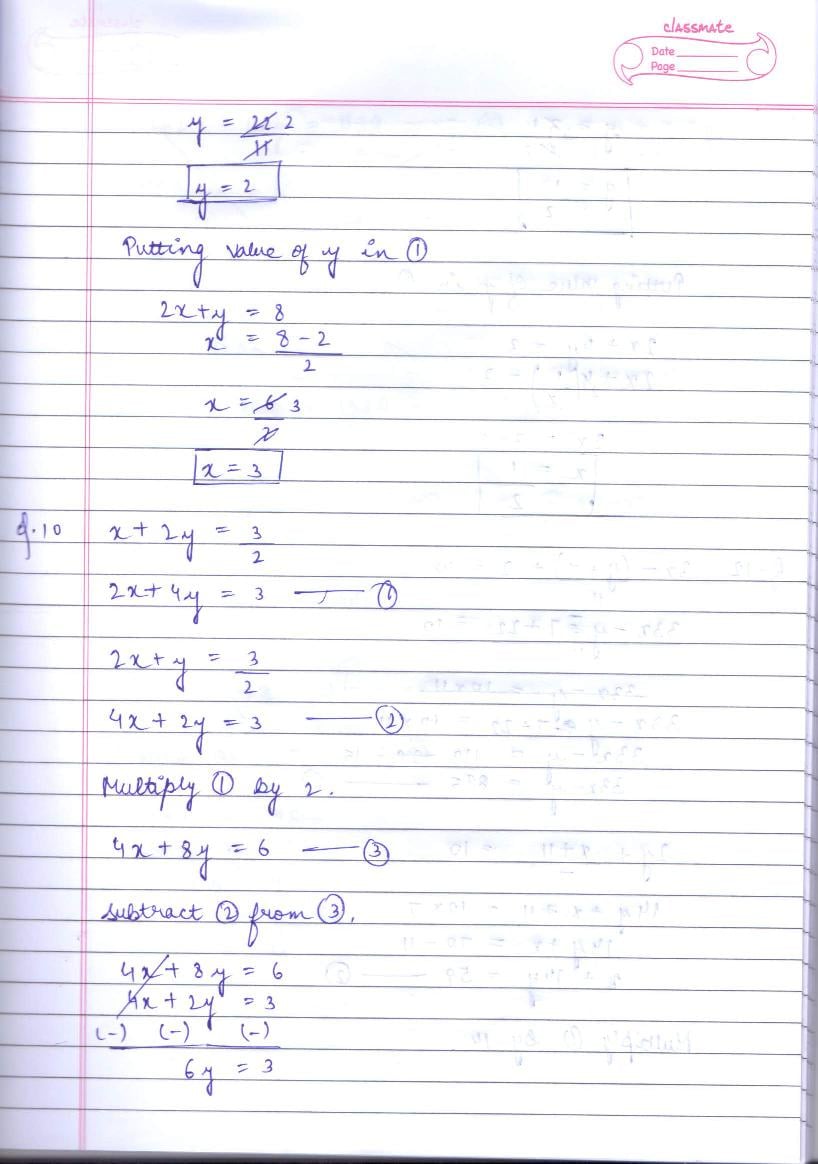 classmate
Date
Page
y = 22 2
11
y = 2
Putting value of y in ①
2x + y = 8
x = 8 - 2
2
x = 6 3
2
x = 3
Q.10 x + 2y = 3
2
2x + 4y = 3 — ①
2x + y = 3
2
4x + 2y = 3 — ②
Multiply ① by 2.
4x + 8y = 6 — ③
Subtract ② from ③.
4x + 8y = 6
4x + 2y = 3
(-) (-) (-)
6y = 3